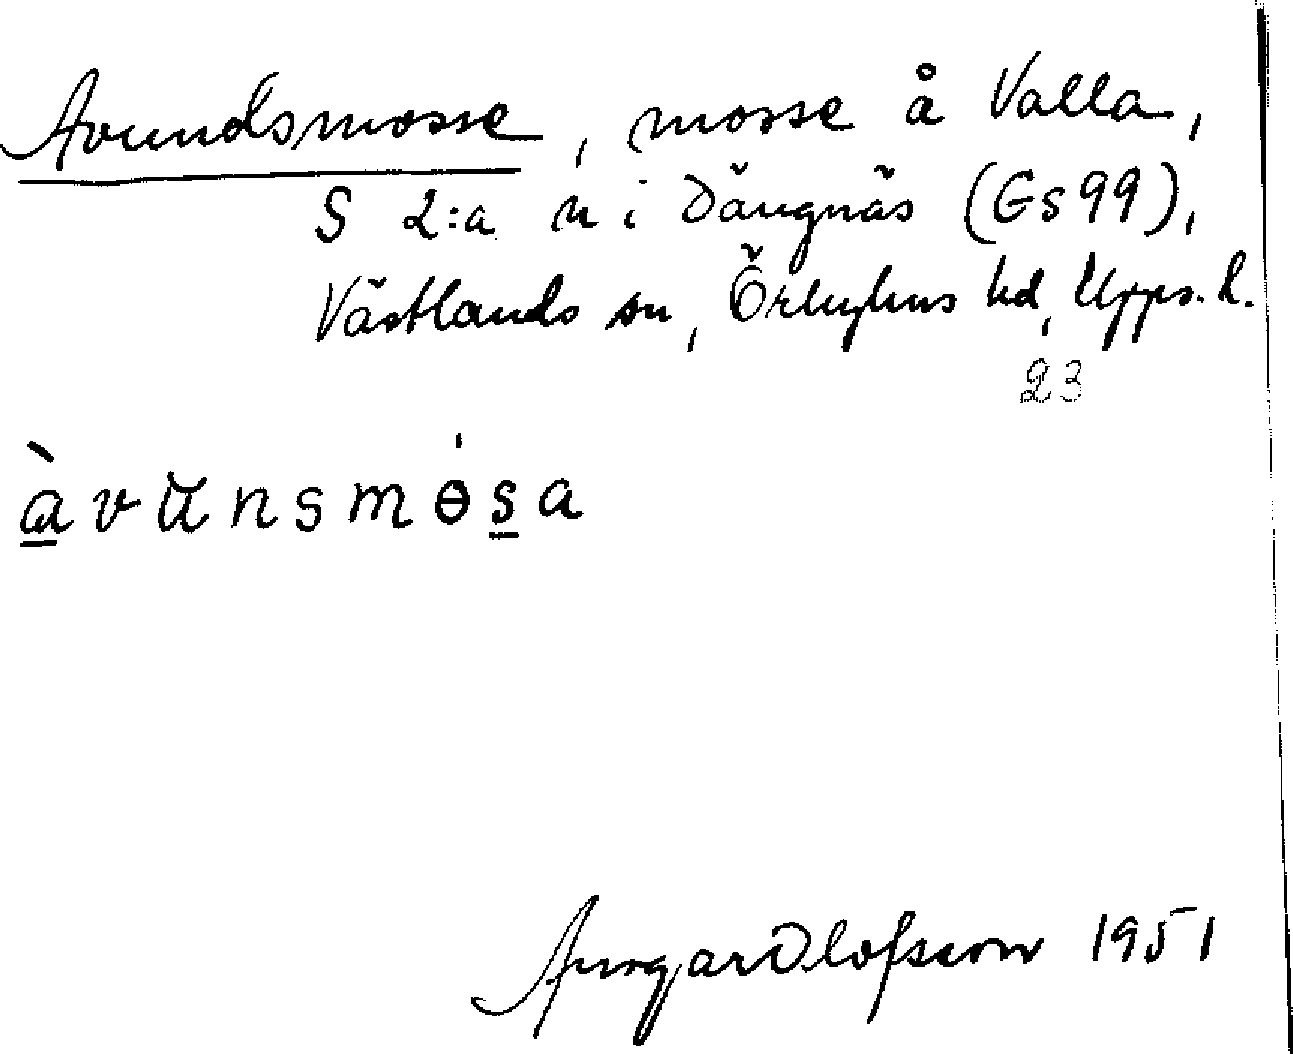 Avundsmosse, mosse å Valla,
S 2:a n i Dångnäs (Gs 99),
Västlands sn, Örbyhus hd, Upps. l.
23
àvŭnsmósa
Ansgar Olofsson 1951